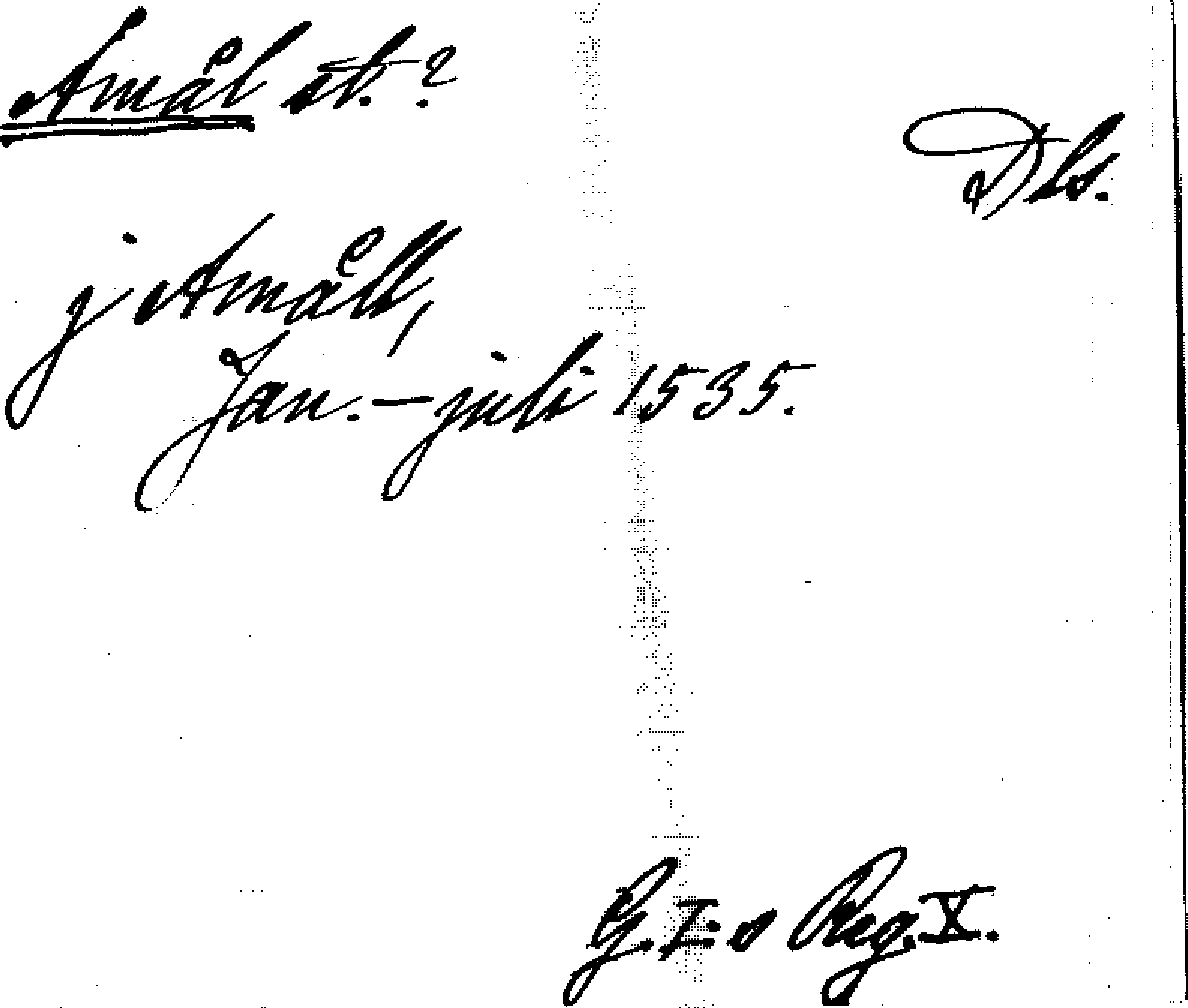 Amål st.?
Dls.
j Amåll,
Jan. – juli 1535.
G. I:s Reg. X.